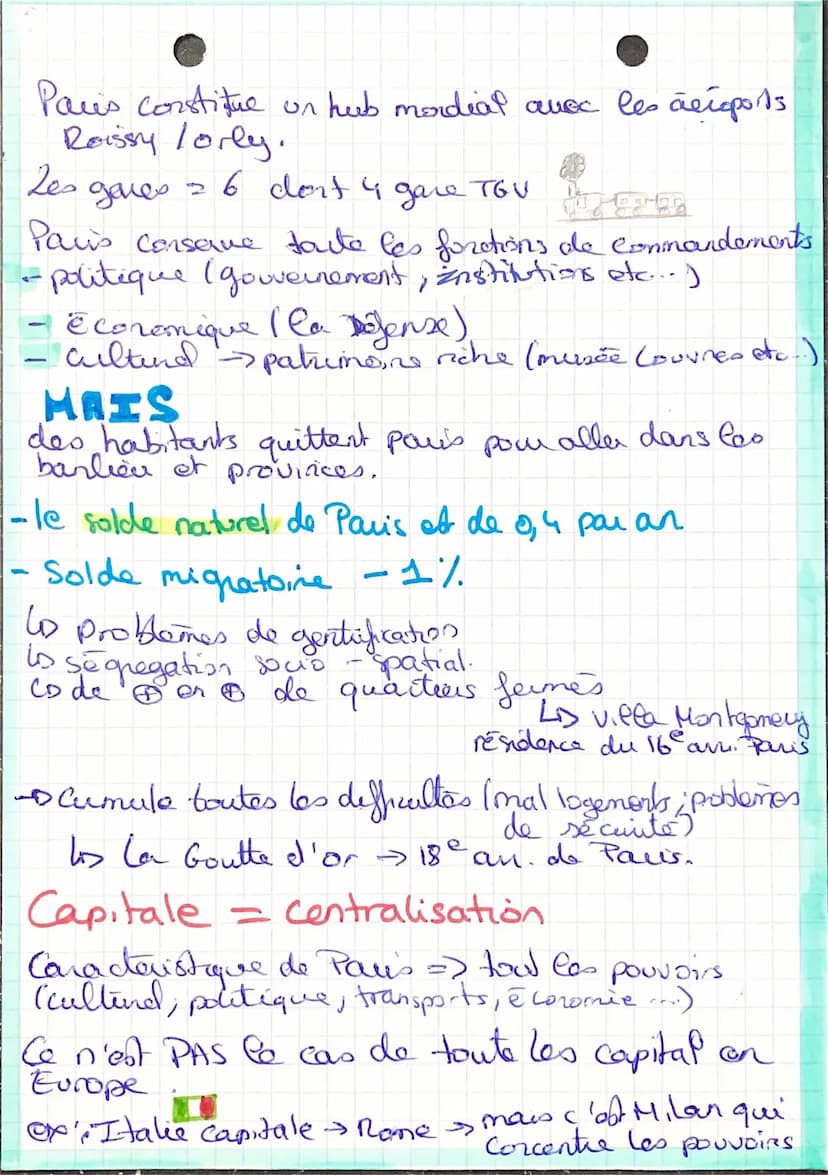 Paris constitue un hub mondial avec les aéroports
Roissy / orly.
Les gares = 6 dont 4 gare TGV
Paris conserve toute les fonctions de commandements
- politique (gouvernement, institutions etc...)
- Economique (la Défense)
- Culturel → patrimoine riche (musée Louvres etc...)
MAIS
des habitants quittent paris pour aller dans les
banlieu et provinces.
- le solde naturel de Paris et de 0,4 par an
- Solde migratoire - 1%
↳ problèmes de gentrification
↳ ségregation socio - spatial.
↳ de ⊕ en ⊕ de quartiers fermés
↳ villa Montgomery
résidence du 16e arr. Paris
→ Cumule toutes les difficultés (mal logements ; problèmes
de sécurité)
↳ la Goutte d'or → 18e arr. de Paris.
Capitale = centralisation
Caractéristique de Paris => tout les pouvoirs
(culturel, politique, transports, économie ...)
Ce n'est PAS le cas de toute les capital en
Europe
ex : Italie capitale → Rome → mais c'est Milan qui
concentre les pouvoirs